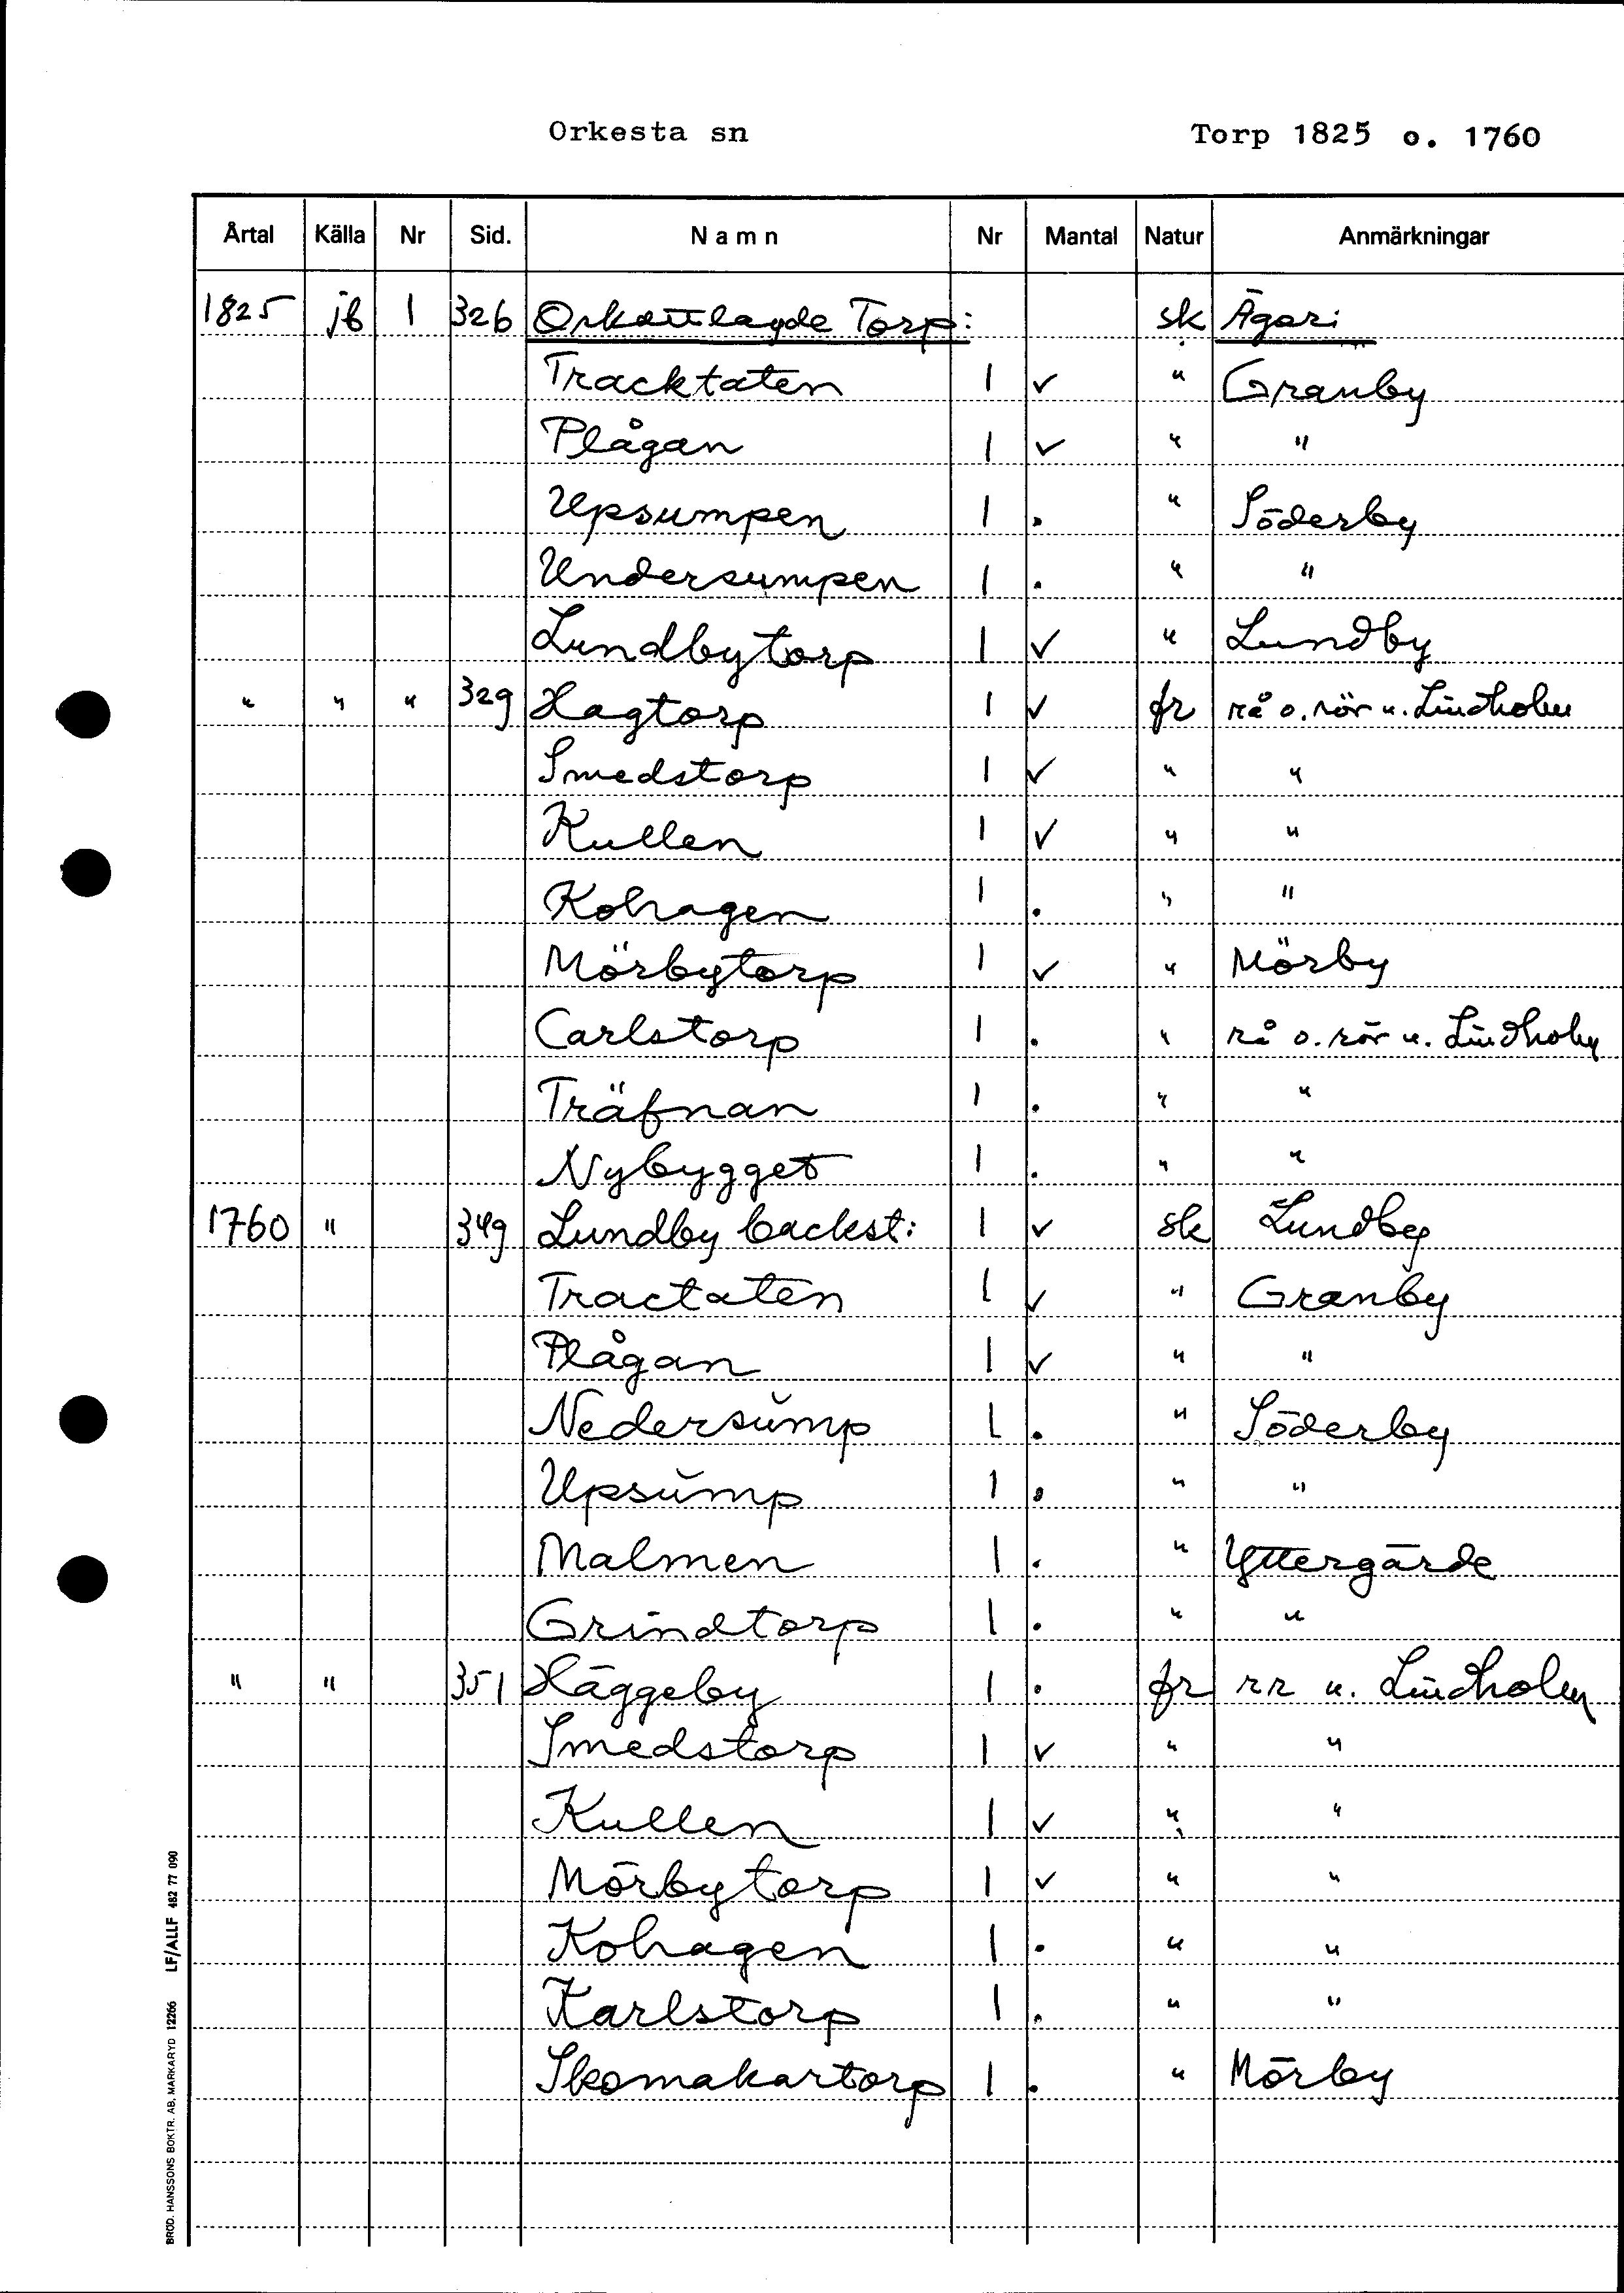 Orkesta sn Torp 1825 o. 1760
Årtal Källa Nr Sid. Namn Nr Mantal Natur Anmärkningar
1825 jb 1 326 Oskattlagde Torp: sk Ägari
Tracktaten 1 ✓ " Granby
Plågan 1 ✓ " "
Upsumpen 1 . " Söderby
Undersumpen 1 . " "
Lundbytorp 1 ✓ " Lundby
" " " 329 Hagtorp 1 ✓ fr rå o. rör u. Lindholm
Smedstorp 1 ✓ " "
Kullen 1 ✓ " "
Kohagen 1 . " "
Mörbytorp 1 ✓ " Mörby
Carlstorp 1 . " rå o. rör u. Lindholm
Träfnan 1 . " "
Nybygget 1 . " "
1760 " 349 Lundby backst: 1 ✓ sk Lundby
Tractaten 1 ✓ " Granby
Plågan 1 ✓ " "
Nedersump 1 . " Söderby
Upsump 1 . " "
Malmen 1 . " Yttergärde
Grindtorp 1 . " "
" " 351 Häggeby 1 . fr rr u. Lindholm
Smedstorp 1 ✓ " "
Kullen 1 ✓ " "
Mörbytorp 1 ✓ " "
Kohagen 1 . " "
Karlstorp 1 . " "
Skomakartorp 1 . " Mörby
BRÖD. HANSSONS BOKTR. AB, MARKARYD 12266 LF/ALLF 482 77 090